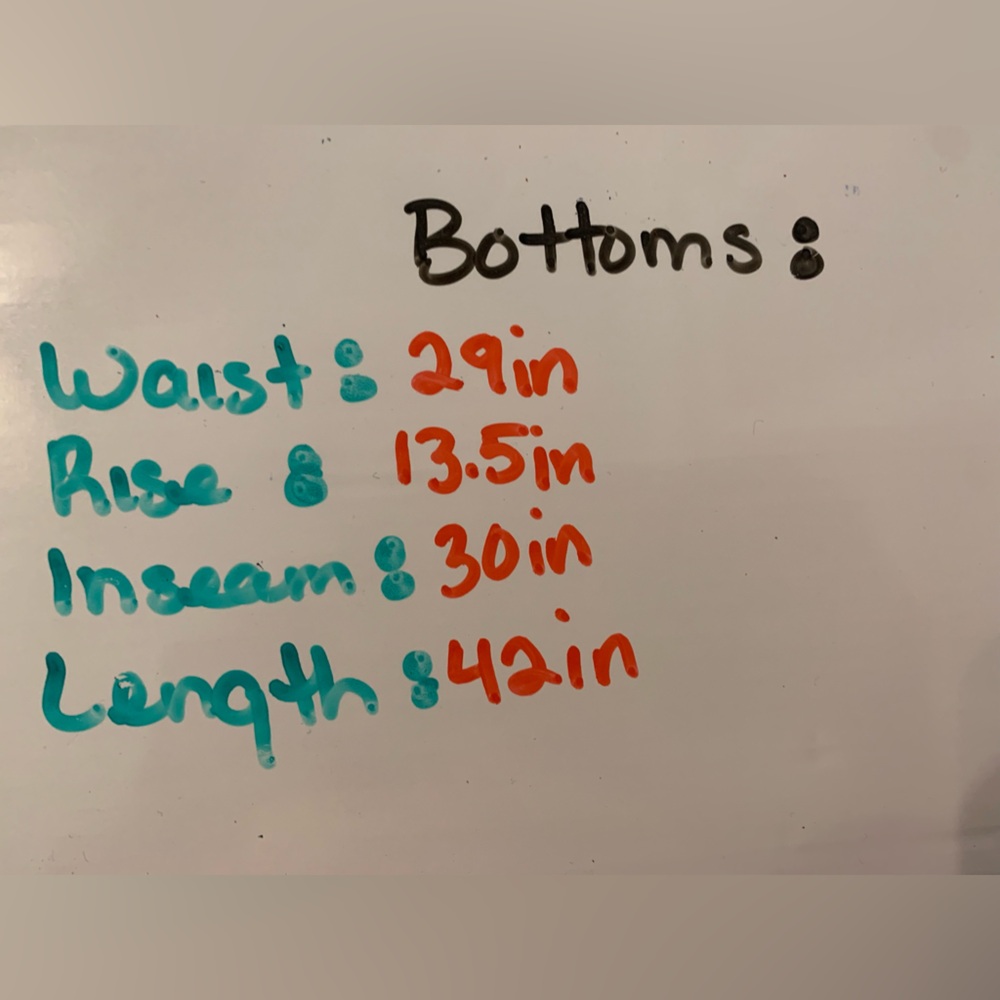 Bottoms:
Waist: 29in
Rise: 13.5in
Inseam: 30in
Length: 42in